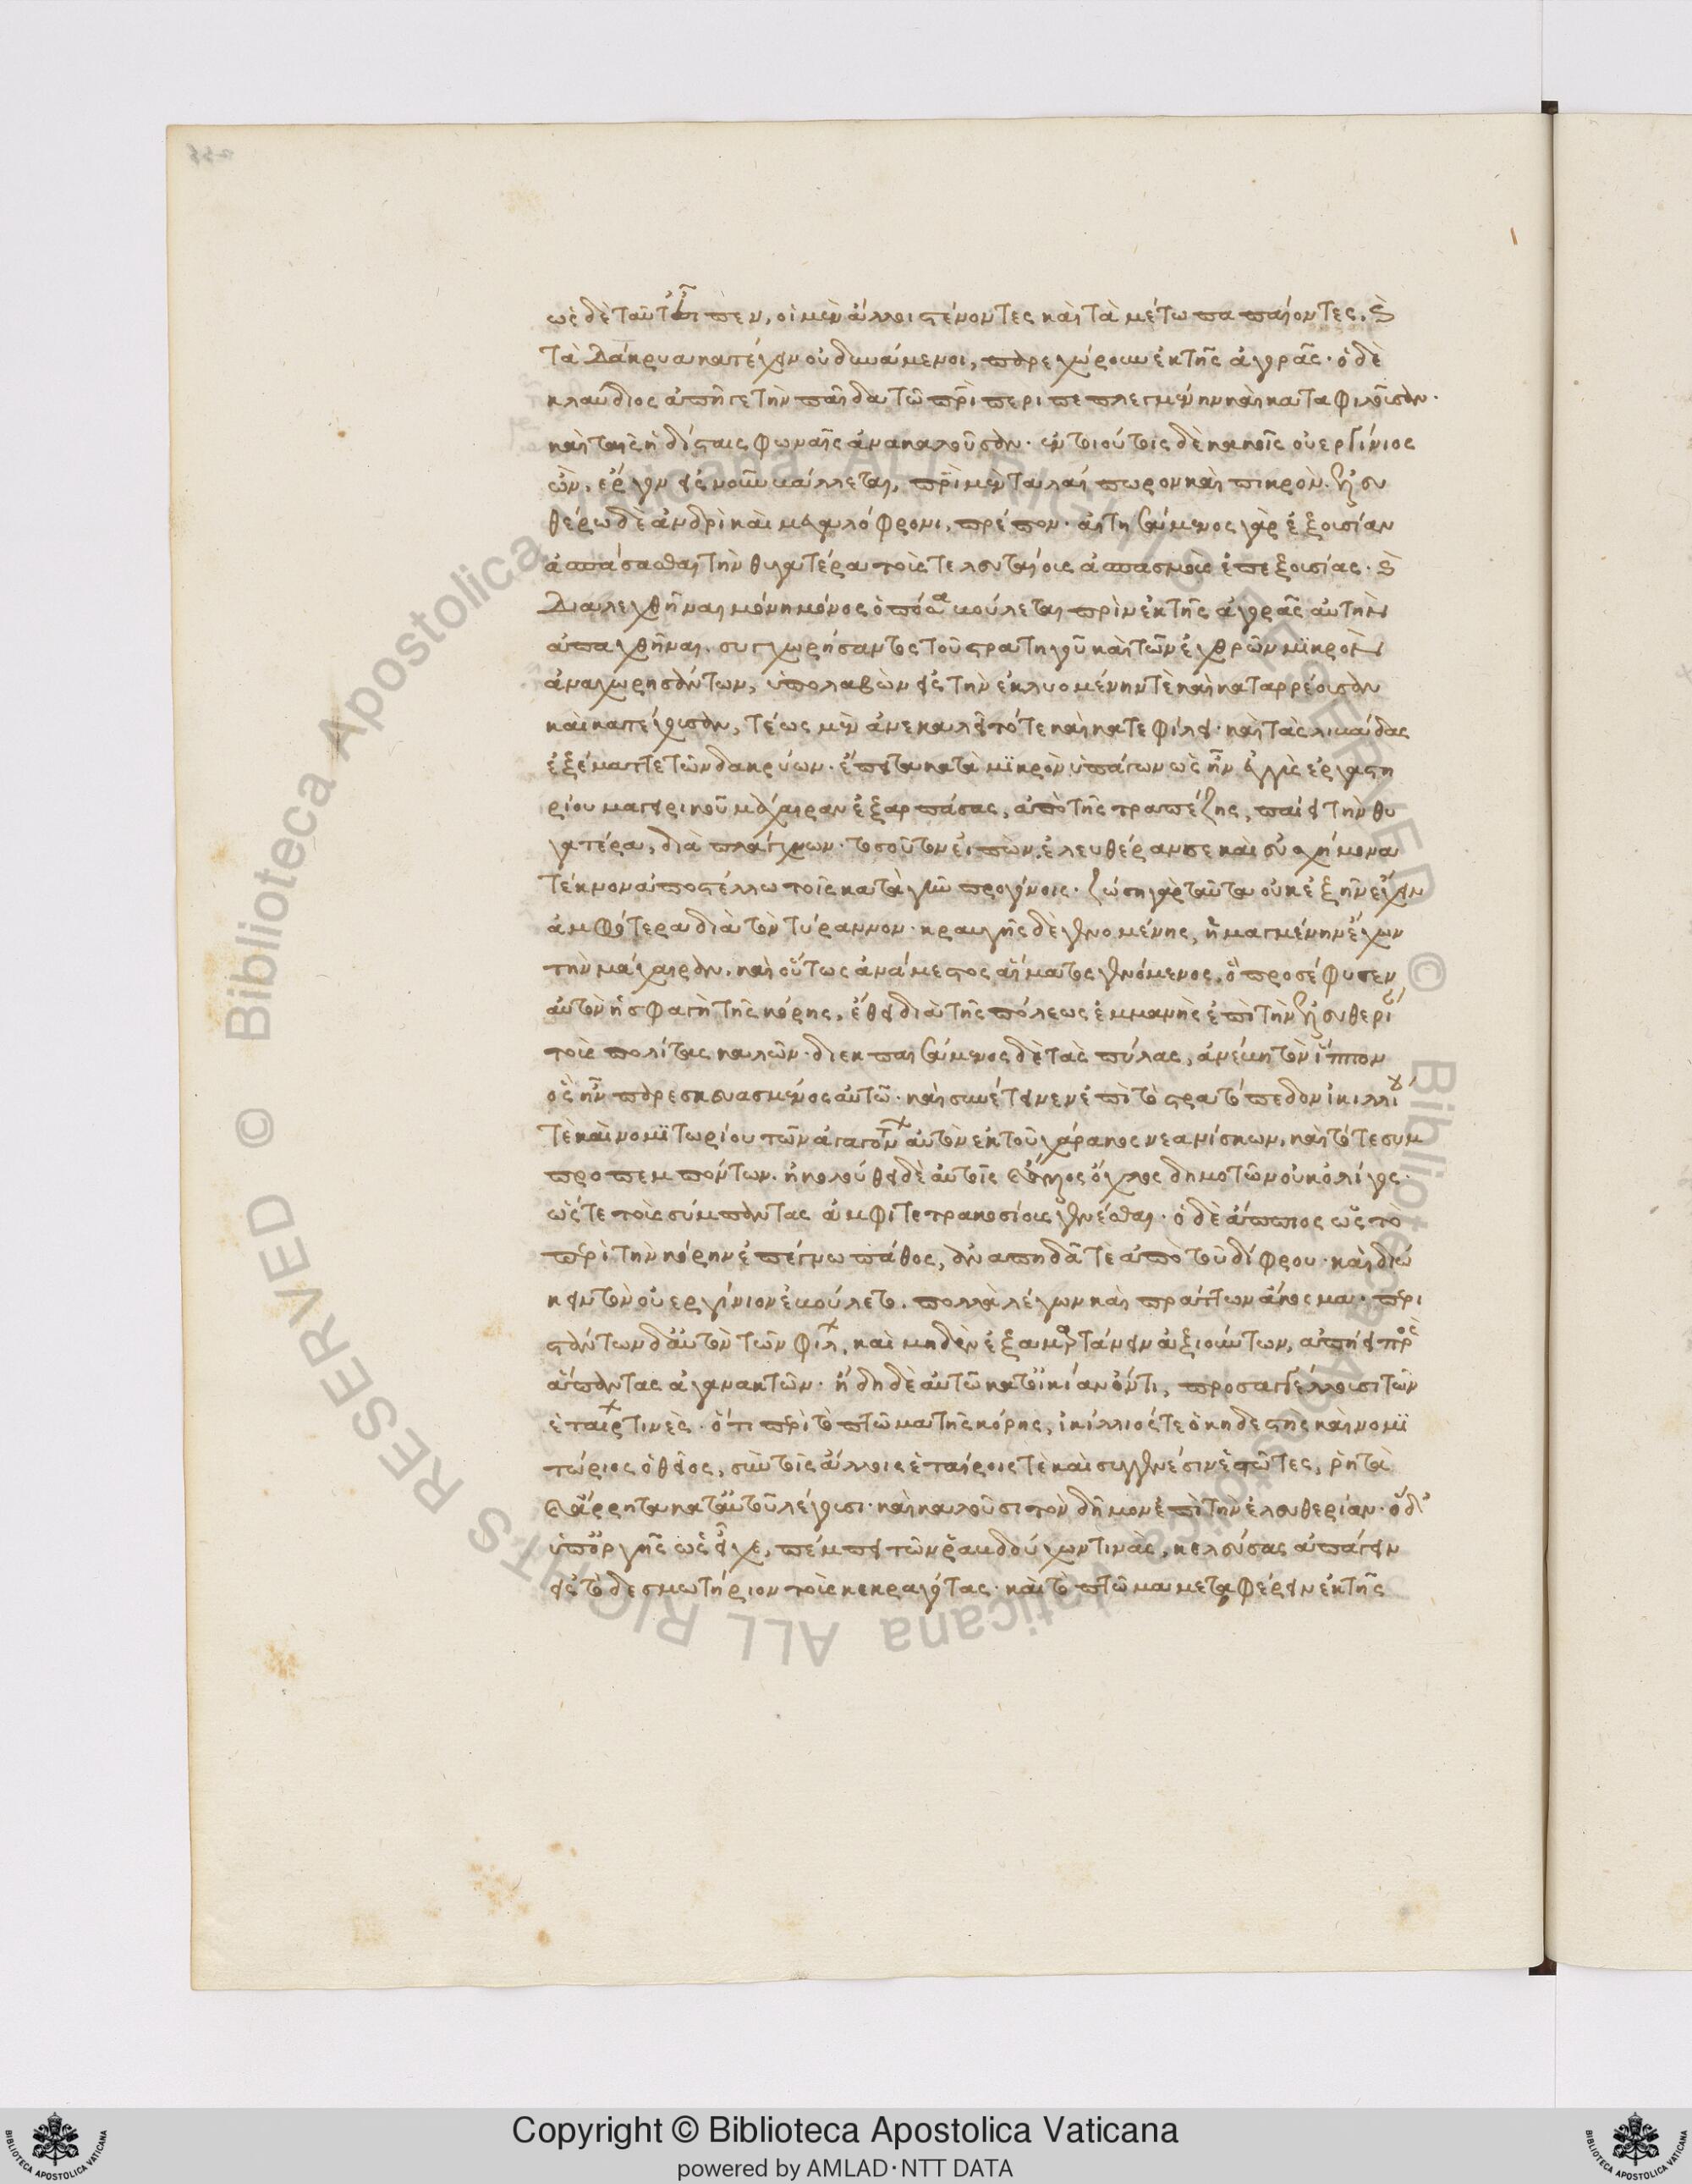 ὡς δὲ ταῦτ' εἶπεν, οἱ μὲν ἄλλοι στένοντες καὶ τὰ μέτωπα παίοντες, καὶ
τὰ δάκρυα κατέχειν οὐ δυνάμενοι, παρεχώρουν ἐκ τῆς ἀγορᾶς· ὁ δὲ
κλαύδιος ἀπῆγε τὴν παῖδα τῶ πατρὶ περιπεπλεγμένην καὶ καταφιλοῦσαν·
καὶ ταῖς ἡδίσταις φωναῖς ἀνακαλοῦσαν· ἐν τοιούτοις δὲ κακοῖς οὐεργίνιος
ὢν, ἔργον εἰς νοῦν βάλλεται, πατρὶ μὲν ταλαίπωρον καὶ πικρὸν· ἐλευ
θέρω δὲ ἀνδρὶ καὶ μεγαλόφρονι, πρέπον· αἰτησάμενος γὰρ ἐξουσίαν
ἀσπάσασθαι τὴν θυγατέρα τοὺς τελευταίους ἀσπασμοὺς ἐπ' ἐξουσίας· καὶ
διαλεχθῆναι μόνη μόνος ὁπόσα βούλεται πρὶν ἐκ τῆς ἀγορᾶς αὐτὴν
ἀπαχθῆναι. συγχωρήσαντος τοῦ στρατηγοῦ καὶ τῶν ἐχθρῶν μικρὸν
ἀναχωρησάντων, ὑπολαβὼν εἰς τὴν ἐκλυομένην τὲ καὶ καταρρέουσαν
καὶ κατέχουσαν, τέως μὲν ἀνεκάλει τότε καὶ κατεφίλει· καὶ τὰς λιβάδας
ἐξέματτε τῶν δακρύων· ἔπειτα κατὰ μικρὸν ὑπάγων ὡς ἦν ἐγγὺς ἐργαστη
ρίου μαγειρικοῦ μάχαιραν ἐξαρπάσας, ἀπὸ τῆς τραπέζης, παίει τὴν θυ
γατέρα, διὰ σπλάγχνων· τοσοῦτον εἰπὼν, ἐλευθέραν σε καὶ εὐσχήμονα
τέκνον ἀποστέλλω τοῖς κατὰ γῆν προγόνοις· ζώση γὰρ ταῦτα οὐκ ἐξῆν ἔχειν
ἀμφότερα διὰ τὸν τύραννον· κραυγῆς δὲ γενομένης, ἡμαγμένην ἔχων
τὴν μάχαιραν, καὶ οὕτως ἀνάμεστος αἵματος γενόμενος, ὃ προσέφυσεν
αὐτὸν ἡ σφαγὴ τῆς κόρης, ἔθει διὰ τῆς πόλεως ἐμμανὴς ἐπὶ τὴν ἐλευθερί
τοὺς πολίτας καλῶν· διεκπαισάμενος δὲ τὰς πύλας, ἀνέβη τὸν ἵππον
ὃς ἦν παρεσκευασμένος αὐτῶ· καὶ συνέτεινεν ἐπὶ τὸ στρατόπεδον ἰκιλλίου
τὲ καὶ νομϊτωρίου τῶν ἀγαγόντων αὐτὸν ἐκ τοῦ χάρακος νεανίσκων, καὶ τότε συμ
προπεμπόντων. ἠκολούθει δὲ αὐτοῖς καὶ ἄλλος ὄχλος δημοτῶν οὐκ ὀλίγος·
ὥστε τοὺς σύμπαντας ἀμφὶ τετρακοσίους γενέσθαι· ὁ δὲ ἄππιος ὡς τὸ
περὶ τὴν κόρην ἐπέγνω πάθος, ἀναπηδᾶ τὲ ἀπὸ τοῦ δίφρου· καὶ διώ
κειν τὸν οὐεργίνιον ἐβούλετο. πολλὰ λέγων καὶ πράττων ἄκοσμα· περι
στάντων δ' αὐτὸν τῶν φίλων, καὶ μηδὲν ἐξαμαρτάνειν ἀξιούντων, ἀπῄει πρὸς
ἅπαντας ἀγανακτῶν· ἤδη δὲ αὐτῶ κατ' οἰκίαν ὄντι, προσαγγέλλουσι τῶν
ἑταίρων τινὲς· ὅτι περὶ τὸ πτῶμα τῆς κόρης, ἰκίλλιός τε ὁ κηδεστὴς καὶ νομϊ
τώριος ὁ θεῖος, σὺν τοῖς ἄλλοις ἑταίροις τὲ καὶ συγγενέσιν ἑστῶτες, ῥητὰ
καὶ ἄρρητα κατ' αὐτοῦ λέγουσι· καὶ καλοῦσι τὸν δῆμον ἐπὶ τὴν ἐλευθερίαν· ὁ δ'
ὑπ' ὀργῆς ὡς εἶχε, πέμπει τῶν ῥαβδούχων τινὰς, κελεύσας ἀπάγειν
εἰς τὸ δεσμωτήριον τοὺς κεκραγότας· καὶ τὸ πτῶμα μεταφέρειν ἐκ τῆς
Copyright © Biblioteca Apostolica Vaticana
powered by AMLAD·NTT DATA